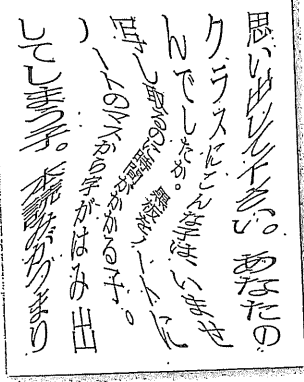 思い出して下さい。あなたの
クラスにこんな子はいませ
んでしたか。黒板をノートに
写し取るのに時間がかかる子。
ノートのマスから字がはみ出
してしまう子。本読みがつまり